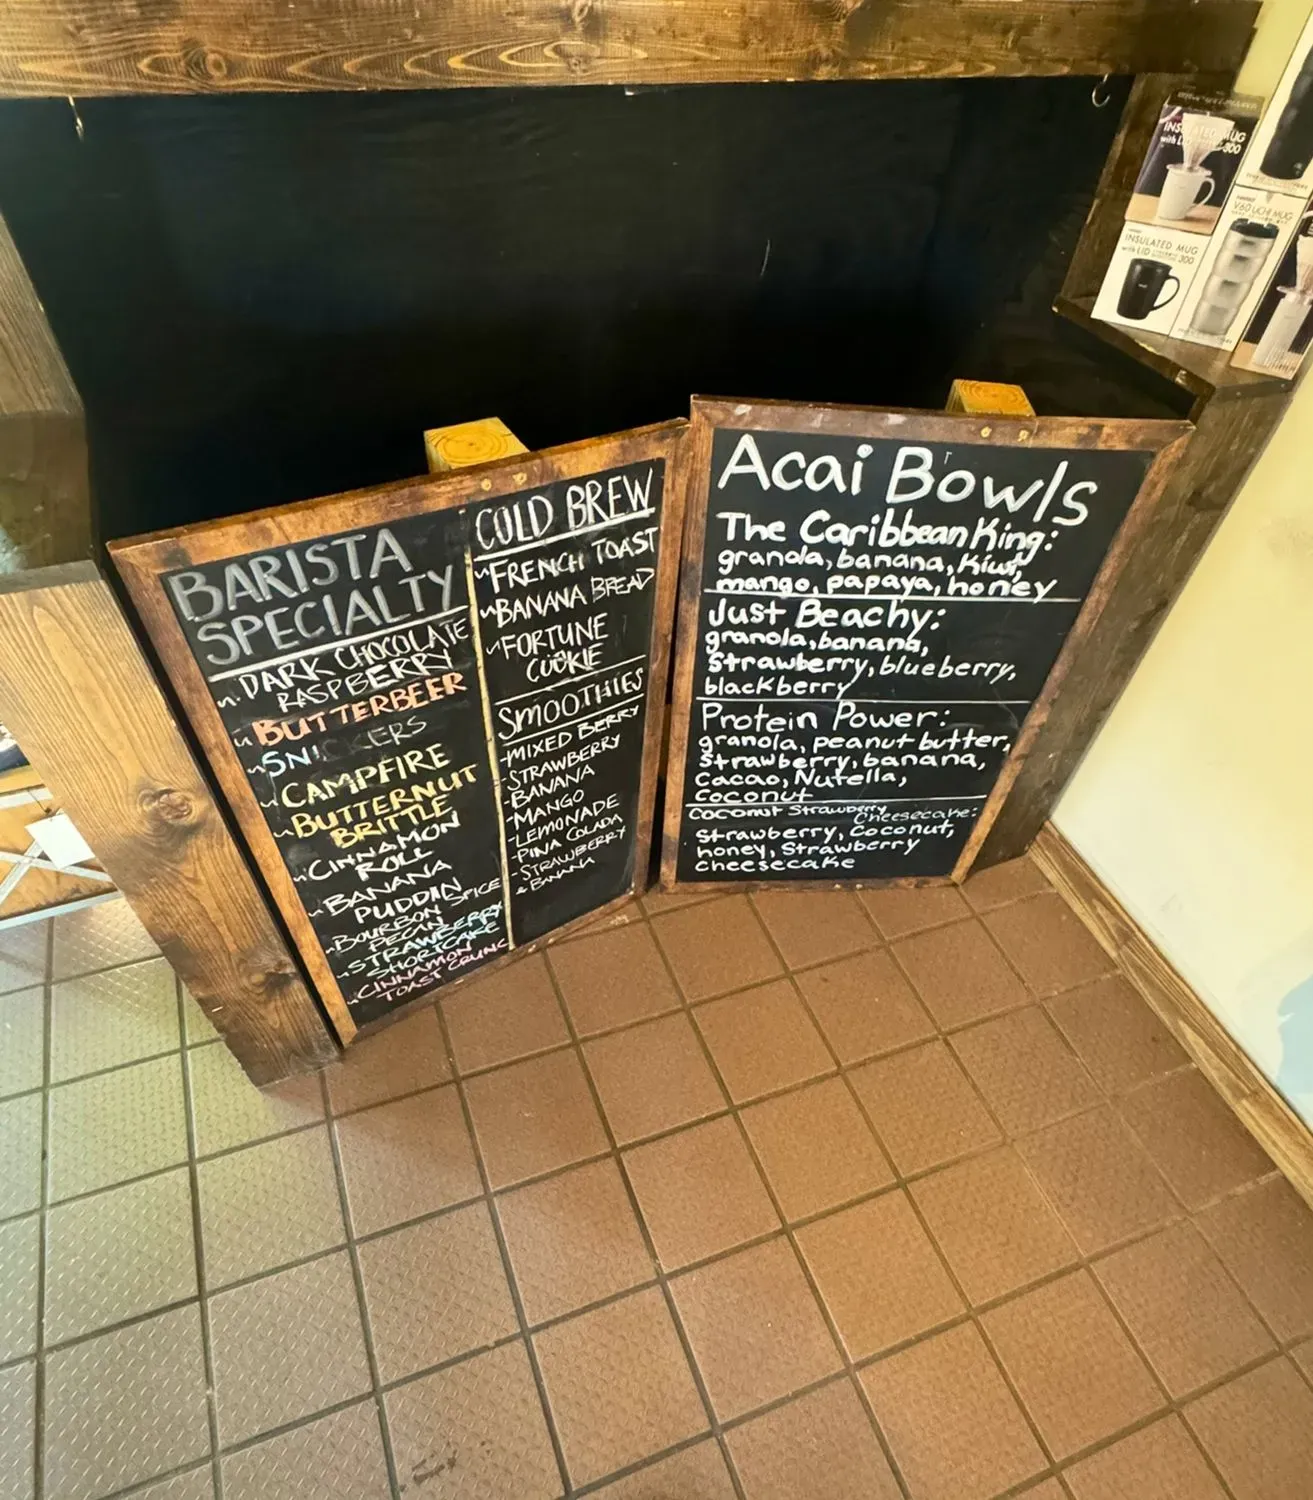 BARISTA
SPECIALTY
~ DARK CHOCOLATE
RASPBERRY
~ BUTTERBEER
~ SNICKERS
~ CAMPFIRE
~ BUTTERNUT
BRITTLE
~ CINNAMON
ROLL
~ BANANA
PUDDIN
~ BOURBON SPICE
PECAN
~ STRAWBERRY
SHORTCAKE
~ CINNAMON
TOAST CRUNC
COLD BREW
~ FRENCH TOAST
~ BANANA BREAD
~ FORTUNE
COOKIE
SMOOTHIES
- MIXED BERRY
- STRAWBERRY
- BANANA
- MANGO
- LEMONADE
- PINA COLADA
- STRAWBERRY
& BANANA
Acai Bowls
The Caribbean King:
granola, banana, Kiwi,
mango, papaya, honey
Just Beachy:
granola, banana,
Strawberry, blueberry,
blackberry
Protein Power:
granola, peanut butter,
Strawberry, banana,
Cacao, Nutella,
Coconut
Coconut Strawberry
Cheesecake:
Strawberry, Coconut,
honey, Strawberry
Cheesecake
INSULATED MUG
with LID 300
V60 UCHI MUG
INSULATED MUG
with LID 300